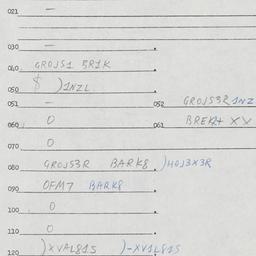 021 —
030 —
040 GROJS1 5R1K
050 $ )1NZL
051 — 052 GROJS2R 1NZ
060 0 061 BREK+ XV
070 0
080 GROJS3R BARK8 )H0J3X3R
090 OFM7 BARK8
100 0
110 0
120 )XVAL815 )-XV1L815